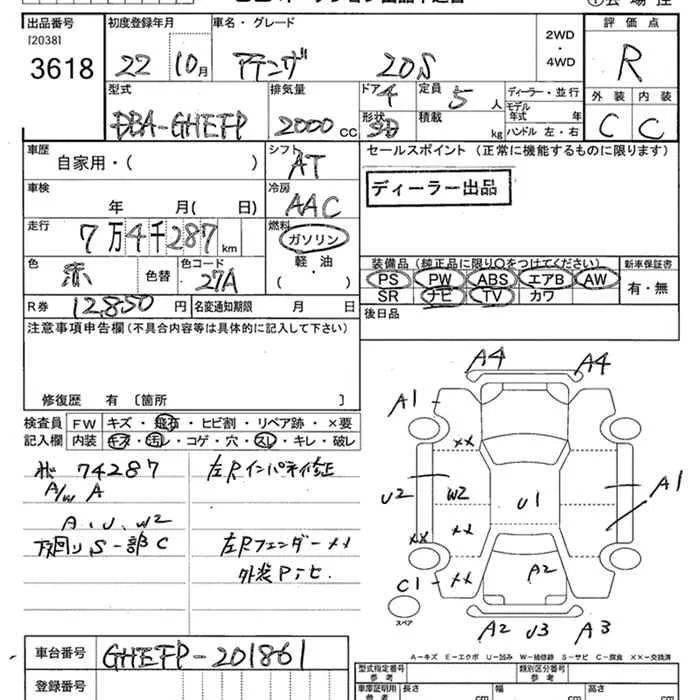 出品番号
[2038]
3618
初度登録年月
22 10月
車名・グレード
アテンザ 20S
2WD
・
4WD
評価点
R
型式
DBA-GHEFP
排気量
2000 CC
ドア
4
形状
5D
定員
5 人
積載
kg
ディーラー・並行
モデル
年式 年
ハンドル 左・右
外装 内装
C C
車歴
自家用・( )
シフト
AT
セールスポイント (正常に機能するものに限ります)
ディーラー出品
車検
年 月( 日)
冷房
AAC
走行
7万4千287 km
燃料
ガソリン
軽・油
・
( )
色
赤
色替
色コード
27A
装備品 (純正品に限り○をつけてください)
新車保証書
PS PW ABS エアB AW
有・無
SR ナビ TV カワ
後日品
R券 12,850 円
名変通知期限 月 日
注意事項申告欄 (不具合内容等は具体的に記入して下さい)
修復歴 有 [箇所 ]
検査員
記入欄
FW キズ・飛石・ヒビ割・リペア跡・×要
内装 キズ・汚レ・コゲ・穴・スレ・キレ・破レ
74287
A/W A
A、U、W2
下回りS一部C
左Rインパネ修正
左Rフェンダー××
外装P
A4 A4
A1
××
U2
W2
U1
A1
××
××
××
C1
A2
スペア
A2 U3 A3
A-キズ E-エクボ U-凹み W-補修跡 S-サビ C-腐食 ××-交換済
車台番号
GHEFP-201861
登録番号
型式指定番号
類別区分番号
車庫証明用
長さ cm
幅 cm
高さ cm